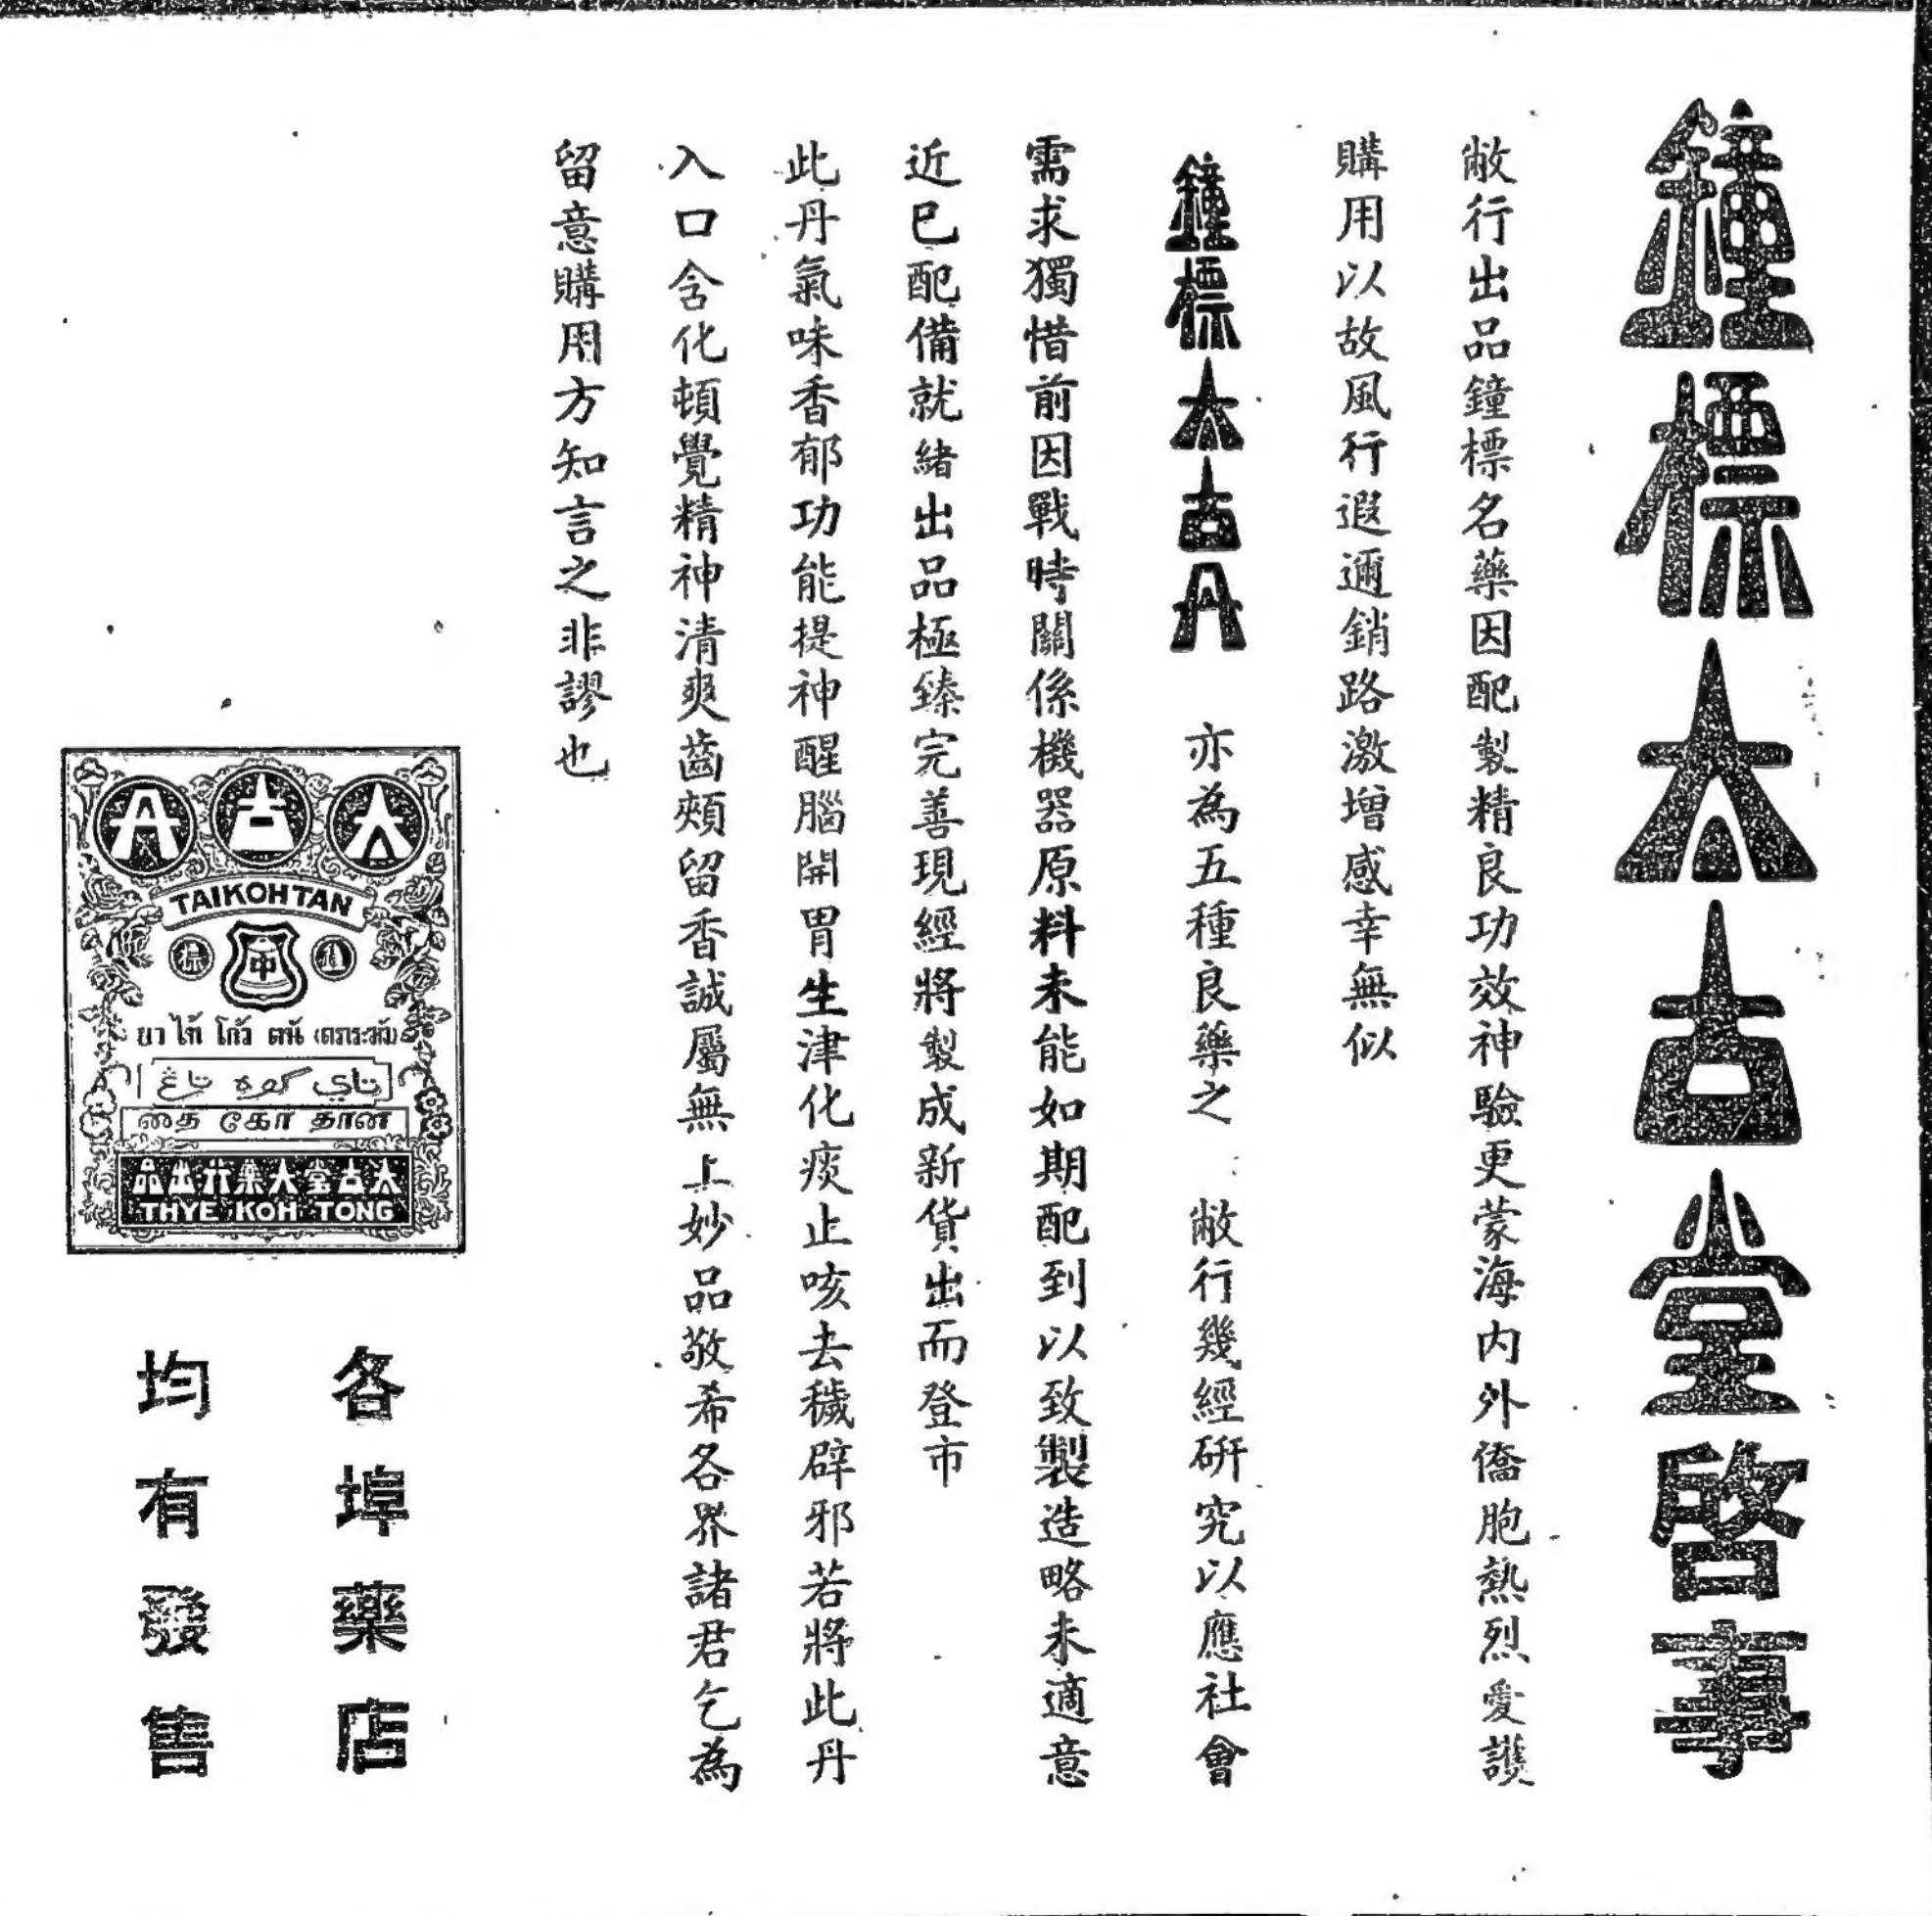 鐘標太古堂啓事
敝行出品鐘標名藥因配製精良功效神驗更蒙海内外僑胞熱烈愛護
購用以故風行遐邇銷路激增感幸無似
鐘標太古丹 亦為五種良藥之 敝行幾經研究以應社會
需求獨惜前因戰時關係機器原料未能如期配到以致製造略未適意
近已配備就緒出品極臻完善現經將製成新貨出而登市
此丹氣味香郁功能提神醒腦開胃生津化痰止咳去穢辟邪若將此丹
入口含化頓覺精神清爽齒頰留香誠屬無上妙品敬希各界諸君乞為
留意購用方知言之非謬也
太古丹
TAIKOHTAN
鐘 中 標
ยา ไท้ โก๊ว ตนั
تاي كوه تاڠ
தை கோ தான
太古堂大藥行出品
THYE KOH TONG
各埠藥店
均有發售